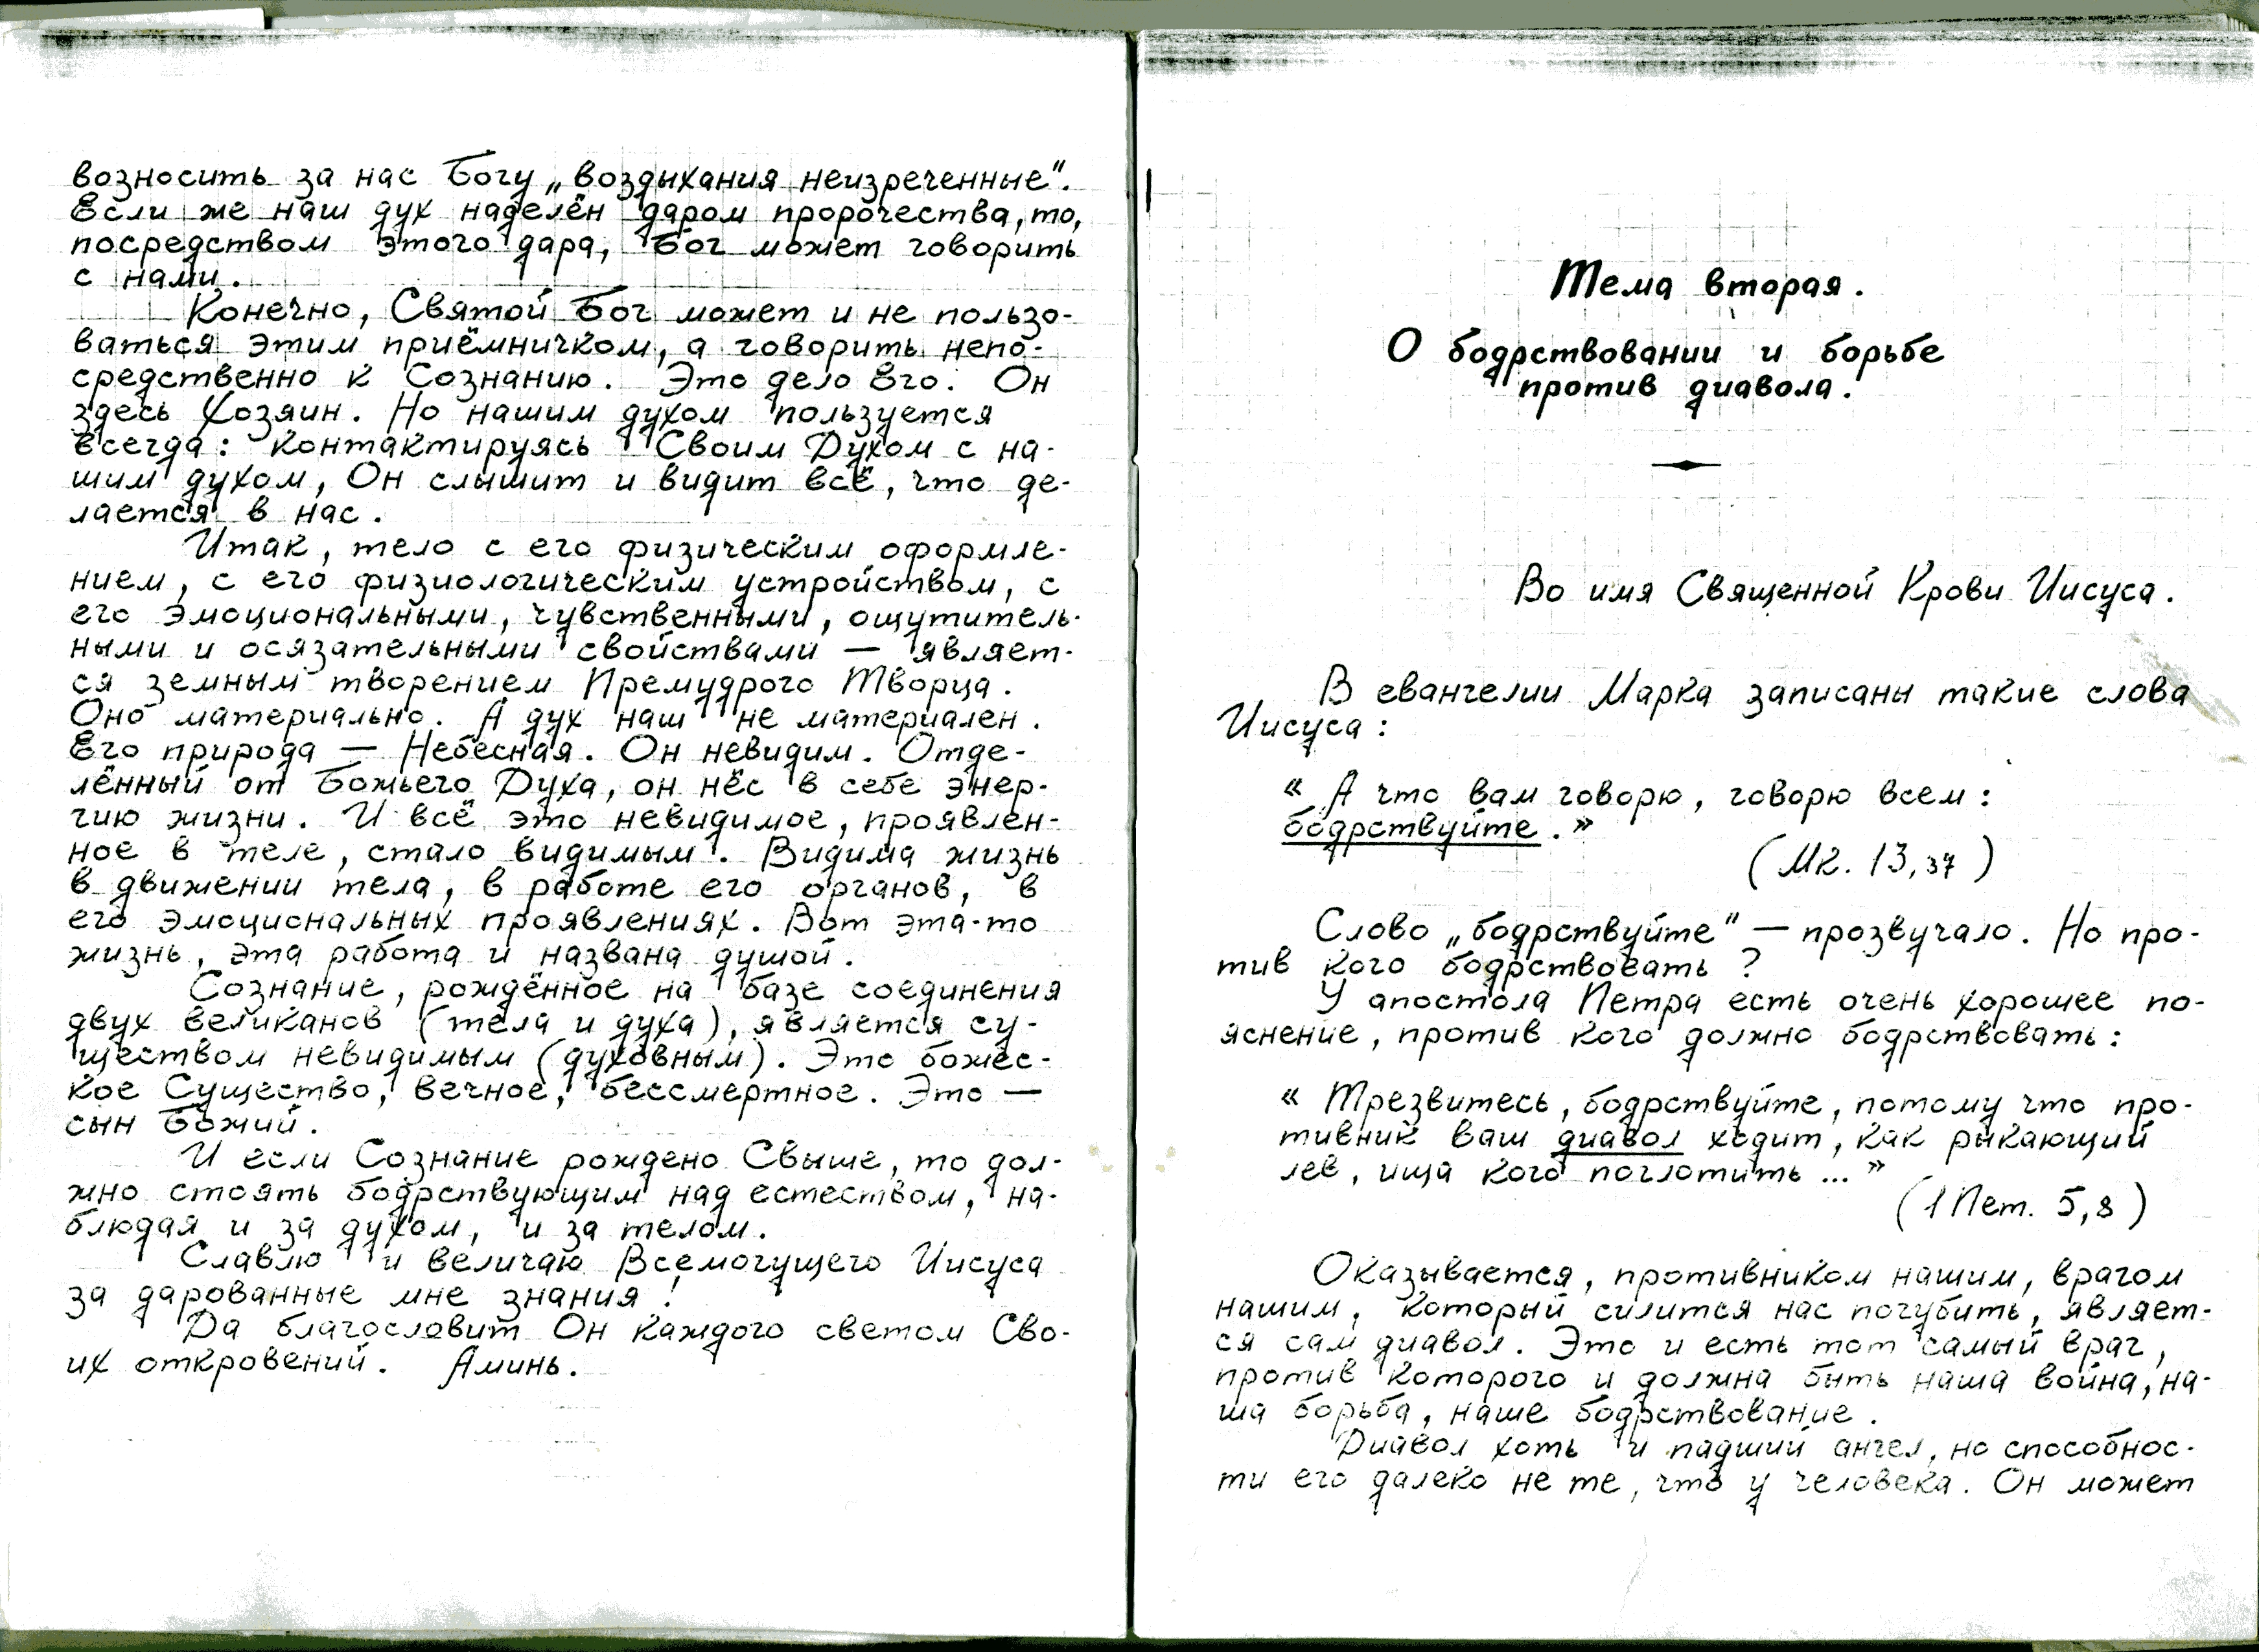 возносить за нас Богу „воздыхания неизреченные".
Если же наш дух наделён даром пророчества, то,
посредством этого дара, Бог может говорить
с нами.
Конечно, Святой Бог может и не пользо-
ваться этим приёмничком, а говорить непо-
средственно к Сознанию. Это дело Его. Он
здесь Хозяин. Но нашим духом пользуется
всегда: контактируясь Своим Духом с на-
шим духом, Он слышит и видит всё, что де-
лается в нас.
Итак, тело с его физическим оформле-
нием, с его физиологическим устройством, с
его эмоциональными, чувственными, ощутитель-
ными и осязательными свойствами — являет-
ся земным творением Премудрого Творца.
Оно материально. А дух наш не материален.
Его природа — Небесная. Он невидим. Отде-
лённый от Божьего Духа, он нёс в себе энер-
гию жизни. И всё это невидимое, проявлен-
ное в теле, стало видимым. Видима жизнь
в движении тела, в работе его органов, в
его эмоциональных проявлениях. Вот эта-то
жизнь, эта работа и названа душой.
Сознание, рождённое на базе соединения
двух великанов (тела и духа), является су-
ществом невидимым (духовным). Это божес-
кое Существо, вечное, бессмертное. Это —
сын Божий.
И если Сознание рождено Свыше, то дол-
жно стоять бодрствующим над естеством, на-
блюдая и за духом, и за телом.
Славлю и величаю Всемогущего Иисуса
за дарованные мне знания!
Да благословит Он каждого светом Сво-
их откровений. Аминь.
Тема вторая.
О бодрствовании и борьбе
против диавола.
Во имя Священной Крови Иисуса.
В евангелии Марка записаны такие слова
Иисуса:
« А что вам говорю, говорю всем:
бодрствуйте.»
(Мк. 13,37)
Слово „бодрствуйте" — прозвучало. Но про-
тив кого бодрствовать?
У апостола Петра есть очень хорошее по-
яснение, против кого должно бодрствовать:
« Трезвитесь, бодрствуйте, потому что про-
тивник ваш диавол ходит, как рыкающий
лев, ища кого поглотить...»
(1 Пет. 5,8)
Оказывается, противником нашим, врагом
нашим, который силится нас погубить, являет-
ся сам диавол. Это и есть тот самый враг,
против которого и должна быть наша война, на-
ша борьба, наше бодрствование.
Диавол хоть и падший ангел, но способнос-
ти его далеко не те, что у человека. Он может